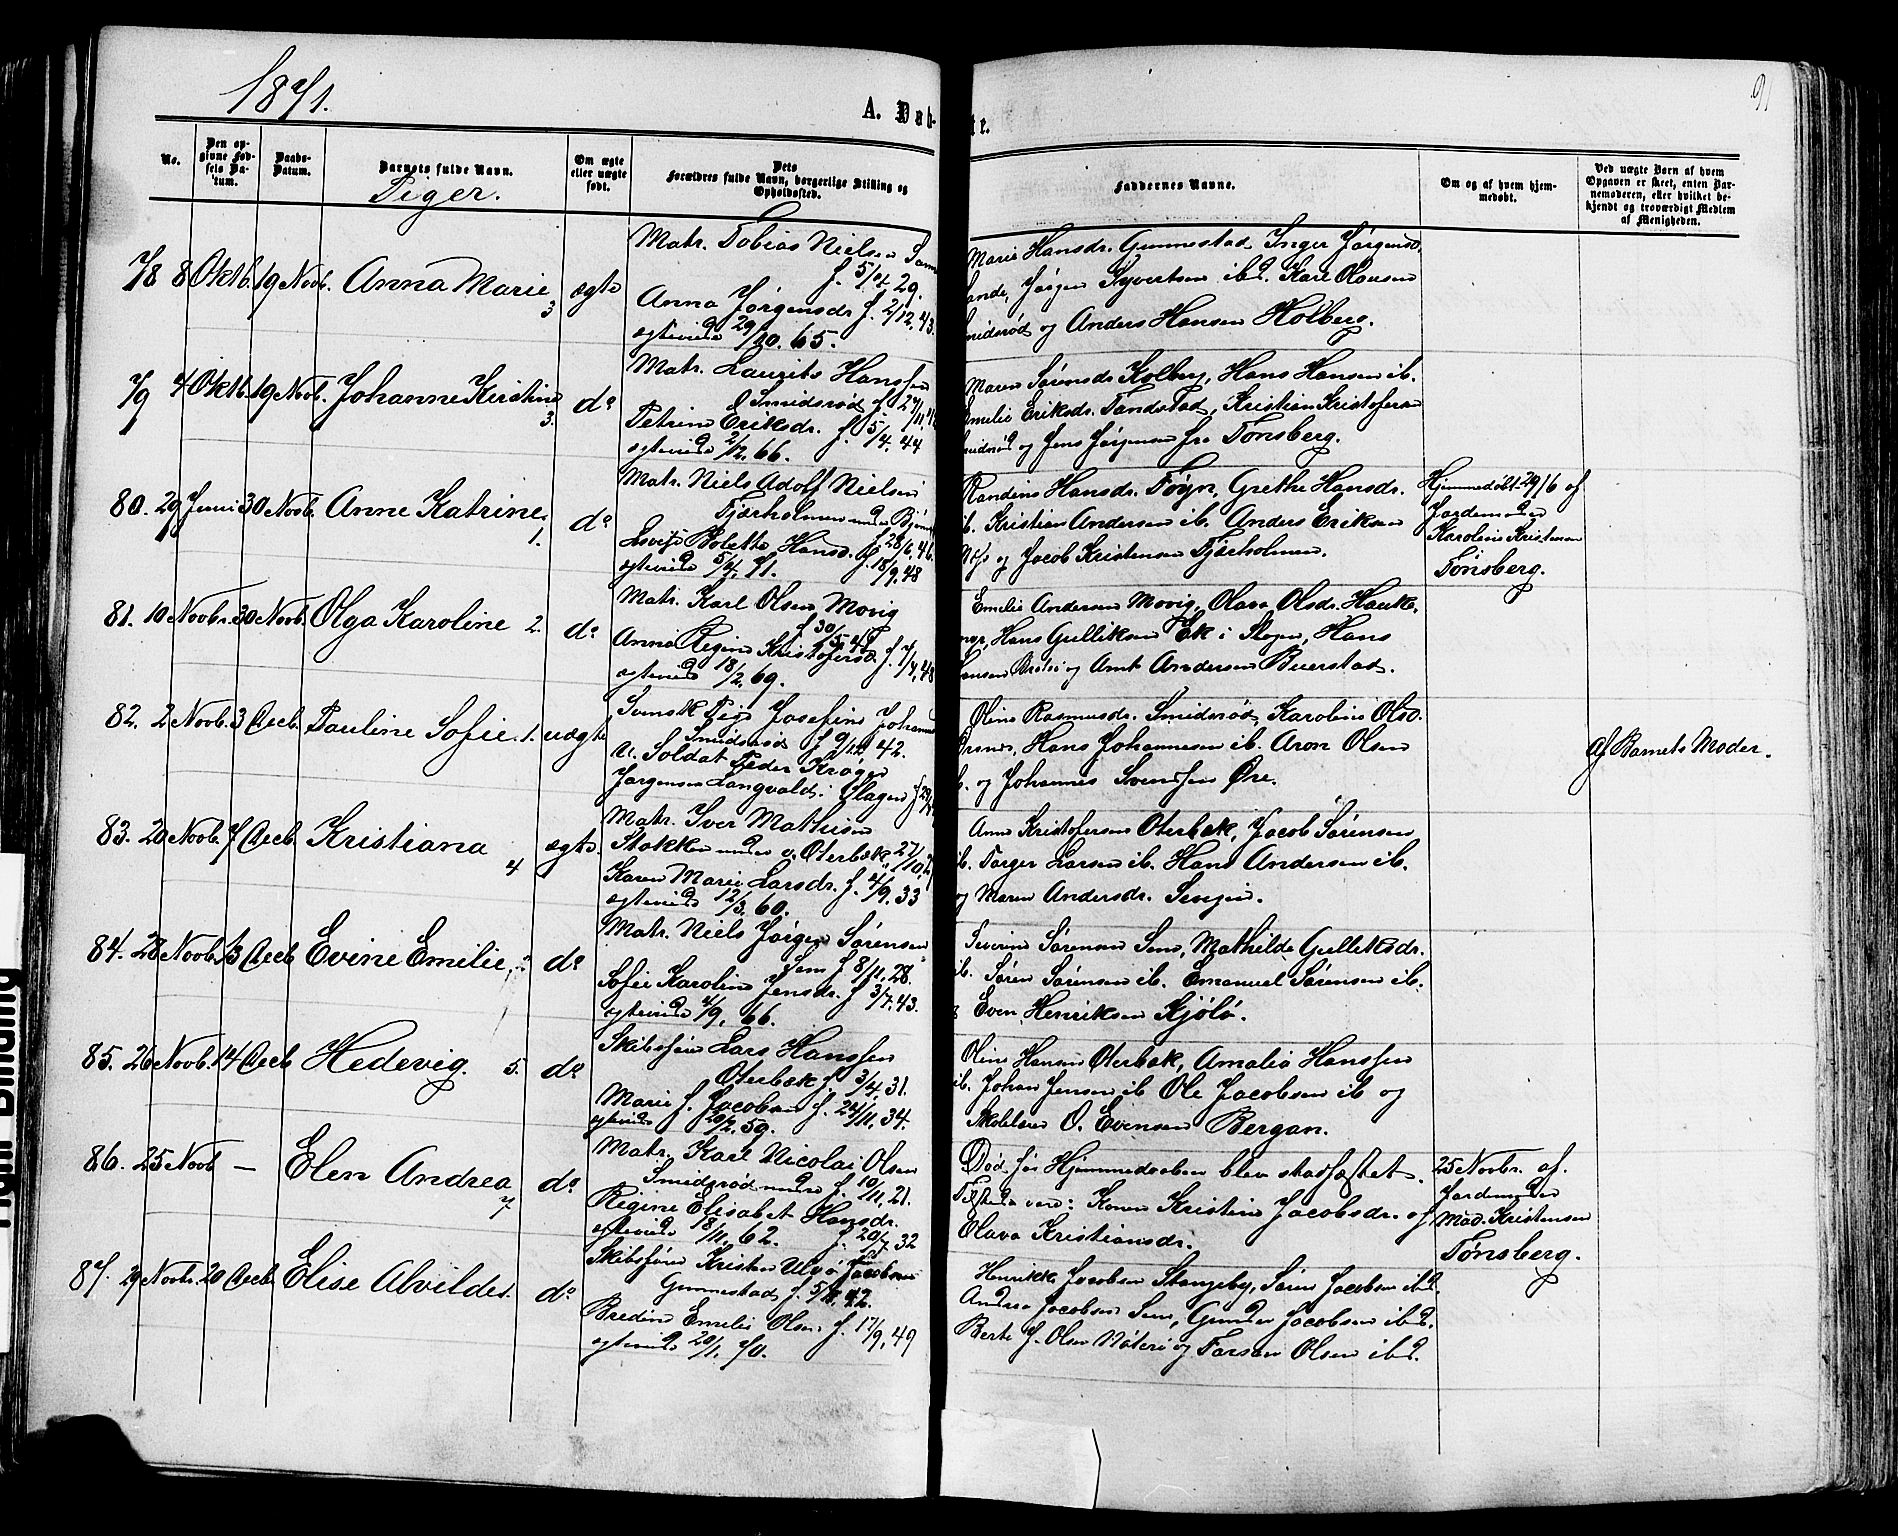 1871.
91
A. Døb-
te.
No.
Den op-
givne Fød-
sels Da-
tum.
Daabs-
Datum.
Barnets fulde Navn.
Piger.
Om ægte
eller uægte
født.
Dets
Forældres fulde Navn, borgerlige Stilling og
Opholdssted.
Faddernes Navne.
Om og af hvem hjem-
medøbt.
Ved uægte Børn af hvem
Opgaven er skeet, enten Bar-
nemoderen, eller hvilket be-
kjendt og troværdigt Medlem
af Menigheden.
78 8 Oktb. 19 Novb. Anna Marie 3 ægte
Matr. Tobias Nielsen
f. 5/4 29.
Anna Jørgensdr f. 2/12, 43.
ægteviede 29/10. 65.
Marie Hansdr. Gunnestad Inger Jørgensd.
Jørgen Syvertsen ibd. Karl Olausen
Smidsrød og Anders Hansen Holberg.
79 4 Oktb. 19 Novb. Johanne Kirstine 3. do
Matr. Laurits Hanssen
Smidsrød f. 27/11,
Petrine Eriksdr. f. 5/4. 44
ægteviede 2/12. 66.
Maren Sørensdr Kolberg, Hans Hansen ib.
Emelie Eriksdr. Tandstad, Kristian Kristofersen
Smidsrød og Jens Jørgensen fra Tønsberg.
80. 29 Juni 30 Novb. Anne Katrine. 1. do
Matr. Niels Adolf Nielsen
Fjærholmen under Bjørne
f. 28/6, 46.
Lovise Bolette Hansd. f. 18/9. 48
ægteviede 5/4. 71.
Randine Hansdr. Føyn, Grethe Hansdr.
ib. Kristian Andersen ib. Anders Eriksen
og Jacob Kristensen Fjærholmen.
Hjemmedøbt 29/6 af
Jordemoder
Karoline Kristensen
Tønsberg.
81. 10 Novbr. 30 Novb. Olga Karoline 2. do
Matr. Karl Olsen Movig
f. 30/5 47
Anna Regine Kristofersd. f. 7/7, 48
ægteviede 18/2. 69.
Emelie Andersen Movig, Olava Olsdr. Hauke,
Hans Gulliksen Ek i Skogen, Hans
Hansen og Amt Andersen Buerstad.
82. 2 Novb. 3 Decb. Pauline Sofie. 1. uægte
Svensk Pige Josefine Johanne
Smidsrød f. 9/12 42.
u. Soldat Peder Krøger
Jørgensen Langvald i Slagen f. 29/
Oline Rasmusdr. Smidsrød, Karoline Olsd.
Ørsnes, Hans Johannesen ib. Aron Olsen
ib. og Johannes Svendsen Øre.
Af Barnets Moder.
83. 20 Novb. 7 Decb. Kristiana 4 ægte.
Matr. Iver Mathisen
Stokken under v. Oterbæk 27/10,
Karen Marie Larsdr. f. 4/9. 33
ægteviede 12/3. 60.
Anne Kristofersen Oterbæk, Jacob Sørensen
ib. Torger Larsen ib. Hans Andersen ib.
og Maren Andersdr.
84. 28 Novb. 13 Decb. Evine Emilie, 2 do
Matr. Niels Jørgen Sørensen
Sem f. 8/11. 28.
Sofie Karoline Jensdr. f. 3/7. 43.
ægteviede 4/9, 66.
Severine Sørensen Sem, Mathilde Gulleksdr.
ib. Søren Sørensen ib. Emanuel Sørensen ib.
og Even Henriksen Kjølø.
85. 26 Novb. 14 Decb Hedevig. 5. do
Skibsfører Lars Hanssen
Oterbæk f. 3/4. 31.
Marie J. Jacobsen f. 24/11. 34.
ægteviede 20/2. 59.
Oline Hansen Oterbæk, Amalia Hanssen
ib. Johan Jensen ib Ole Jacobsen ib og
Skolelærer O. Evensen Bergan.
86. 25 Novb — Elen Andrea 7 do
Matr. Karl Nicolai Olsen
Smidsrød under f. 10/11. 21.
Regine Elisabet Hansdr.
ægteviede 18/11. 62. f. 20/7 32
Død før Hjemmedaaben blev stadfæstet.
Tilstede vare: Konen Kristine Jacobsdr. og
Olava Kristiansdr.
25 Novbr. af
Jordemoder
Mad. Kristensen
Tønsberg.
87. 29 Novbr. 20 Decb. Elise Alvilde 1. do
Skibsfører Kristen Ulvø Jacobsen
Gunnestad f. 5/12. 42.
Bredine Emelie Olsen f. 17/9, 49
ægteviede 20/1. 70.
Henrikke Jacobsen Stangeby, Søren Jacobsen ibd.
Andrea Jacobsen Sem, Gunder Jacobsen ibd.
Berte J. Olsen Nøterø og Torsten Olsen ibd.